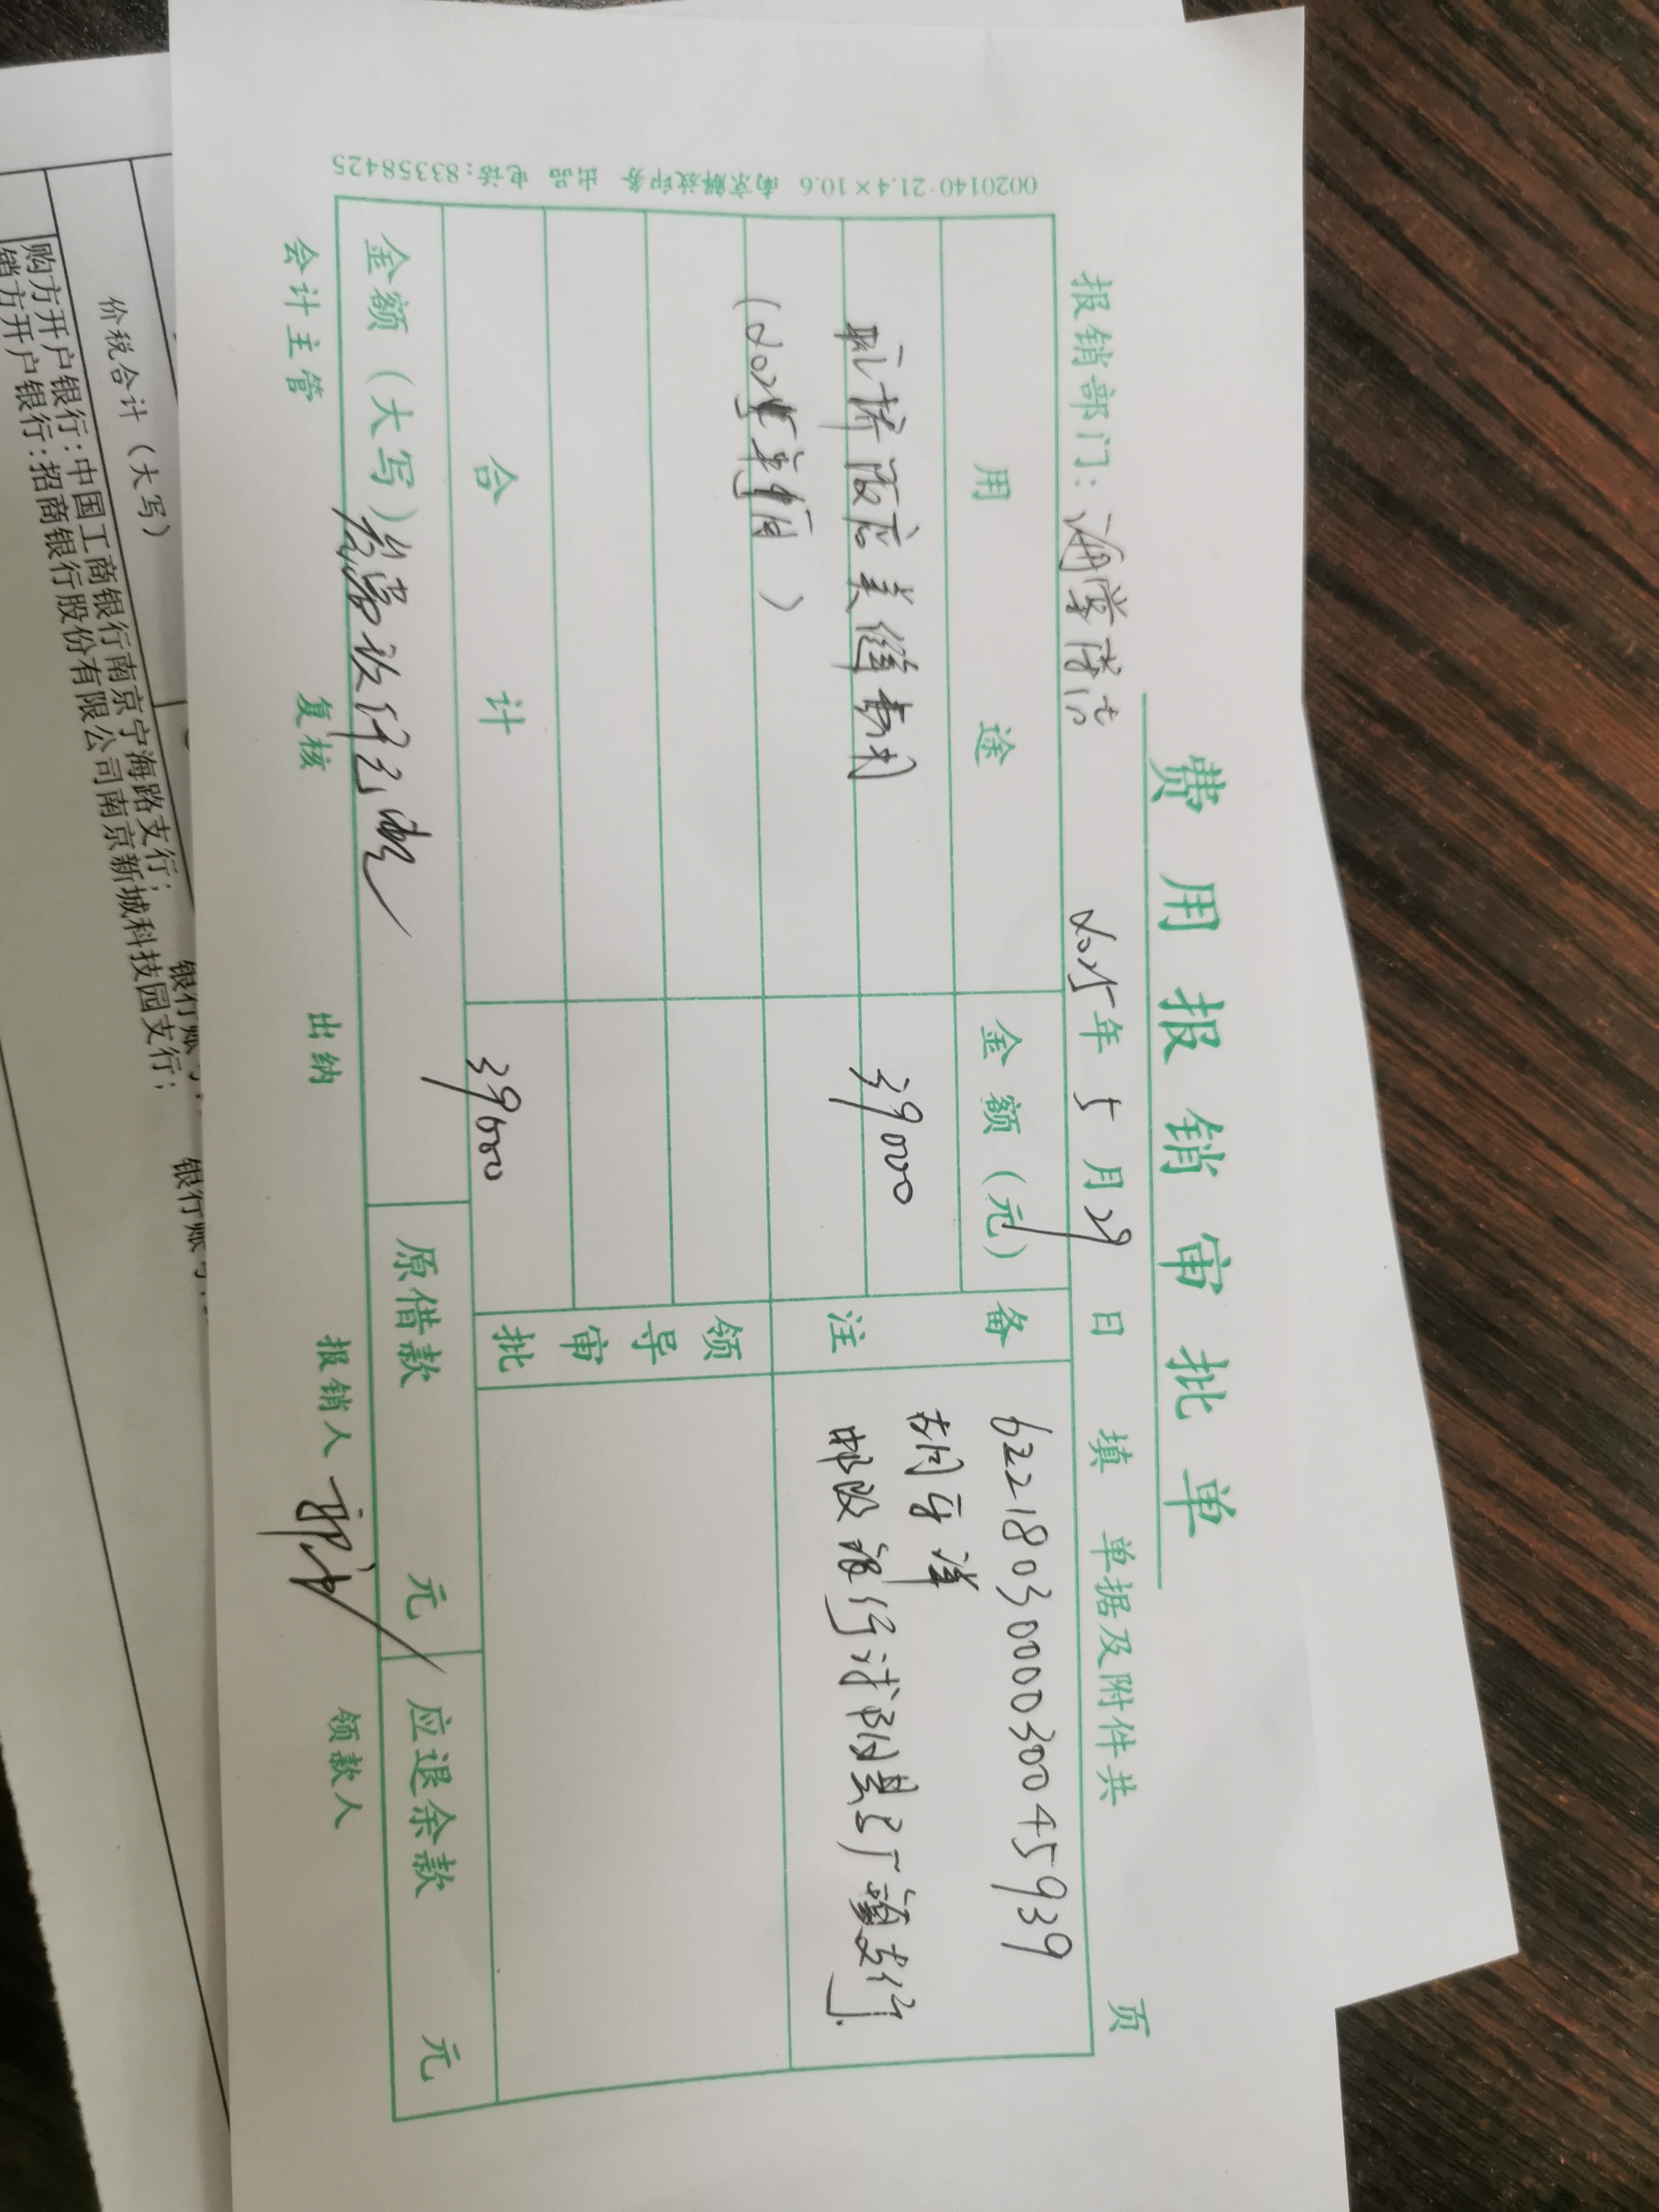 费用报销审批单
报销部门：海棠
2025年5月29日
填
单据及附件共
页
用途
金额（元）
备注
39000
6221803000030045939
胡守洋
邮政银行
支行
领导审批
合计
39000
金额（大写）叁万玖仟元整
原借款
元
应退余款
元
会计主管
复核
出纳
报销人
领款人
0020140·21.4×10.6 南京解放印务 出品 电话：83358425
价税合计（大写）
购方开户银行：中国工商银行南京宁海路支行；
银行账号
销方开户银行：招商银行股份有限公司南京新城科技园支行；
银行账号